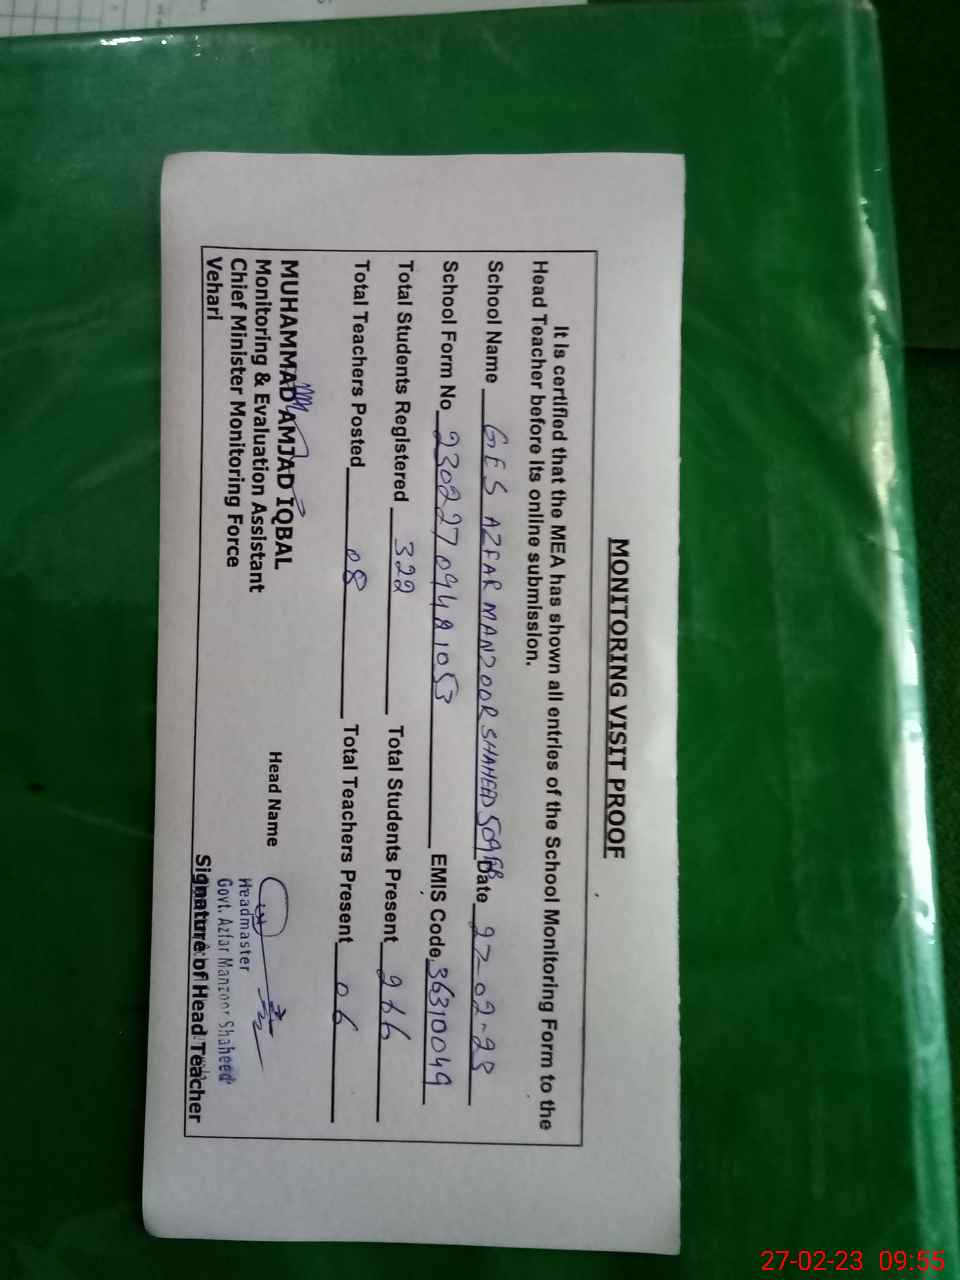 MONITORING VISIT PROOF
It is certified that the MEA has shown all entries of the School Monitoring Form to the
Head Teacher before its online submission.
School Name GES AZFAR MANZOOR SHAHEED 509EB Date 27-02-23
School Form No 230227094421053 EMIS Code 36310049
Total Students Registered 322 Total Students Present 266
Total Teachers Posted 08 Total Teachers Present 06
MUHAMMAD AMJAD IQBAL
Monitoring & Evaluation Assistant
Chief Minister Monitoring Force
Vehari
Head Name
Headmaster
Govt. Azfar Manzoor Shaheed
Signature of Head Teacher
27-02-23 09:55